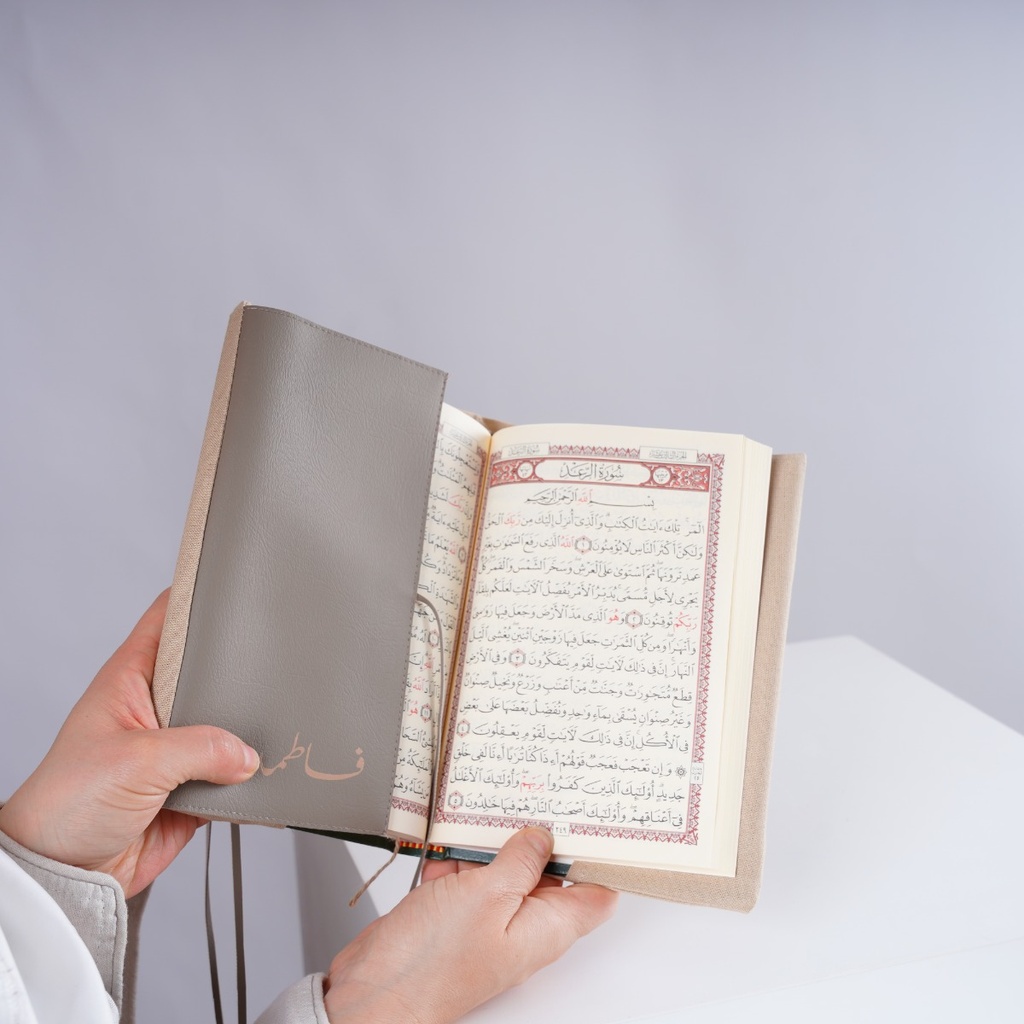 سُورَةُ الرَّعْدِ
بِسْمِ اللَّهِ الرَّحْمَٰنِ الرَّحِيمِ
الٓمٓر تِلْكَ ءَايَٰتُ ٱلْكِتَٰبِ وَٱلَّذِىٓ أُنزِلَ إِلَيْكَ مِن رَّبِّكَ ٱلْحَقُّ
وَلَٰكِنَّ أَكْثَرَ ٱلنَّاسِ لَا يُؤْمِنُونَ ١ ٱللَّهُ ٱلَّذِى رَفَعَ ٱلسَّمَٰوَٰتِ بِغَيْرِ
عَمَدٍ تَرَوْنَهَا ثُمَّ ٱسْتَوَىٰ عَلَى ٱلْعَرْشِ وَسَخَّرَ ٱلشَّمْسَ وَٱلْقَمَرَ كُلٌّ
يَجْرِى لِأَجَلٍ مُّسَمًّى يُدَبِّرُ ٱلْأَمْرَ يُفَصِّلُ ٱلْءَايَٰتِ لَعَلَّكُم بِلِقَآءِ
رَبِّكُمْ تُوقِنُونَ ٢ وَهُوَ ٱلَّذِى مَدَّ ٱلْأَرْضَ وَجَعَلَ فِيهَا رَوَٰسِىَ
وَأَنْهَٰرًا وَمِن كُلِّ ٱلثَّمَرَٰتِ جَعَلَ فِيهَا زَوْجَيْنِ ٱثْنَيْنِ يُغْشِى ٱلَّيْلَ
ٱلنَّهَارَ إِنَّ فِى ذَٰلِكَ لَءَايَٰتٍ لِّقَوْمٍ يَتَفَكَّرُونَ ٣ وَفِى ٱلْأَرْضِ
قِطَعٌ مُّتَجَٰوِرَٰتٌ وَجَنَّٰتٌ مِّنْ أَعْنَٰبٍ وَزَرْعٌ وَنَخِيلٌ صِنْوَانٌ
وَغَيْرُ صِنْوَانٍ يُسْقَىٰ بِمَآءٍ وَٰحِدٍ وَنُفَضِّلُ بَعْضَهَا عَلَىٰ بَعْضٍ
فِى ٱلْأُكُلِ إِنَّ فِى ذَٰلِكَ لَءَايَٰتٍ لِّقَوْمٍ يَعْقِلُونَ ٤
۞ وَإِن تَعْجَبْ فَعَجَبٌ قَوْلُهُمْ أَءِذَا كُنَّا تُرَٰبًا أَءِنَّا لَفِى خَلْقٍ
جَدِيدٍ أُو۟لَٰٓئِكَ ٱلَّذِينَ كَفَرُوا۟ بِرَبِّهِمْ وَأُو۟لَٰٓئِكَ ٱلْأَغْلَٰلُ
فِىٓ أَعْنَاقِهِمْ وَأُو۟لَٰٓئِكَ أَصْحَٰبُ ٱلنَّارِ هُمْ فِيهَا خَٰلِدُونَ ٥
٢٤٩
فاطمة